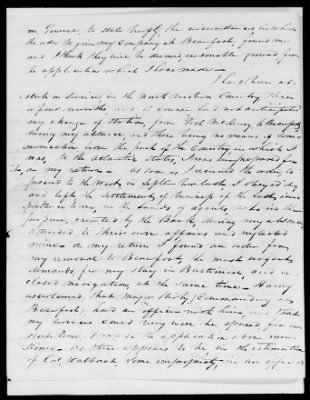 me Gaines, to state briefly the circumstances in which
the order to join my Company at Beaufort, found me
and I think they will be deemed reasonable ground for
the application which I have made —
I had been ab-
sent on Service in the North western Country there
a few months and of course had not anticipated
my change of station, from Fort McHenry to Beaufort,
during my absence, and there being no means of Com-
munication from the part of the Country in which I
was, to the Atlantic States, I was unprepared for
on my return — As soon as I received the order to
proceed to the West, in September last, I obeyed it,
and left the settlement of
in the hands of agents, who in the
created by the Bank, during my absence
attended to their own affairs and neglected
mine — on my return I found an order for
my removal to Beaufort, the most urgent
demands for my stay in Baltimore, and a
closed navigation at the same time — Having
ascertained that Major Kirby (Commanding at
Beaufort) had an officer with him, and that
my services could very well be spared, for a
short time, I made the application above men-
tioned — As there appears to be in the
of Col. Walbach, some impropriety, in an officer